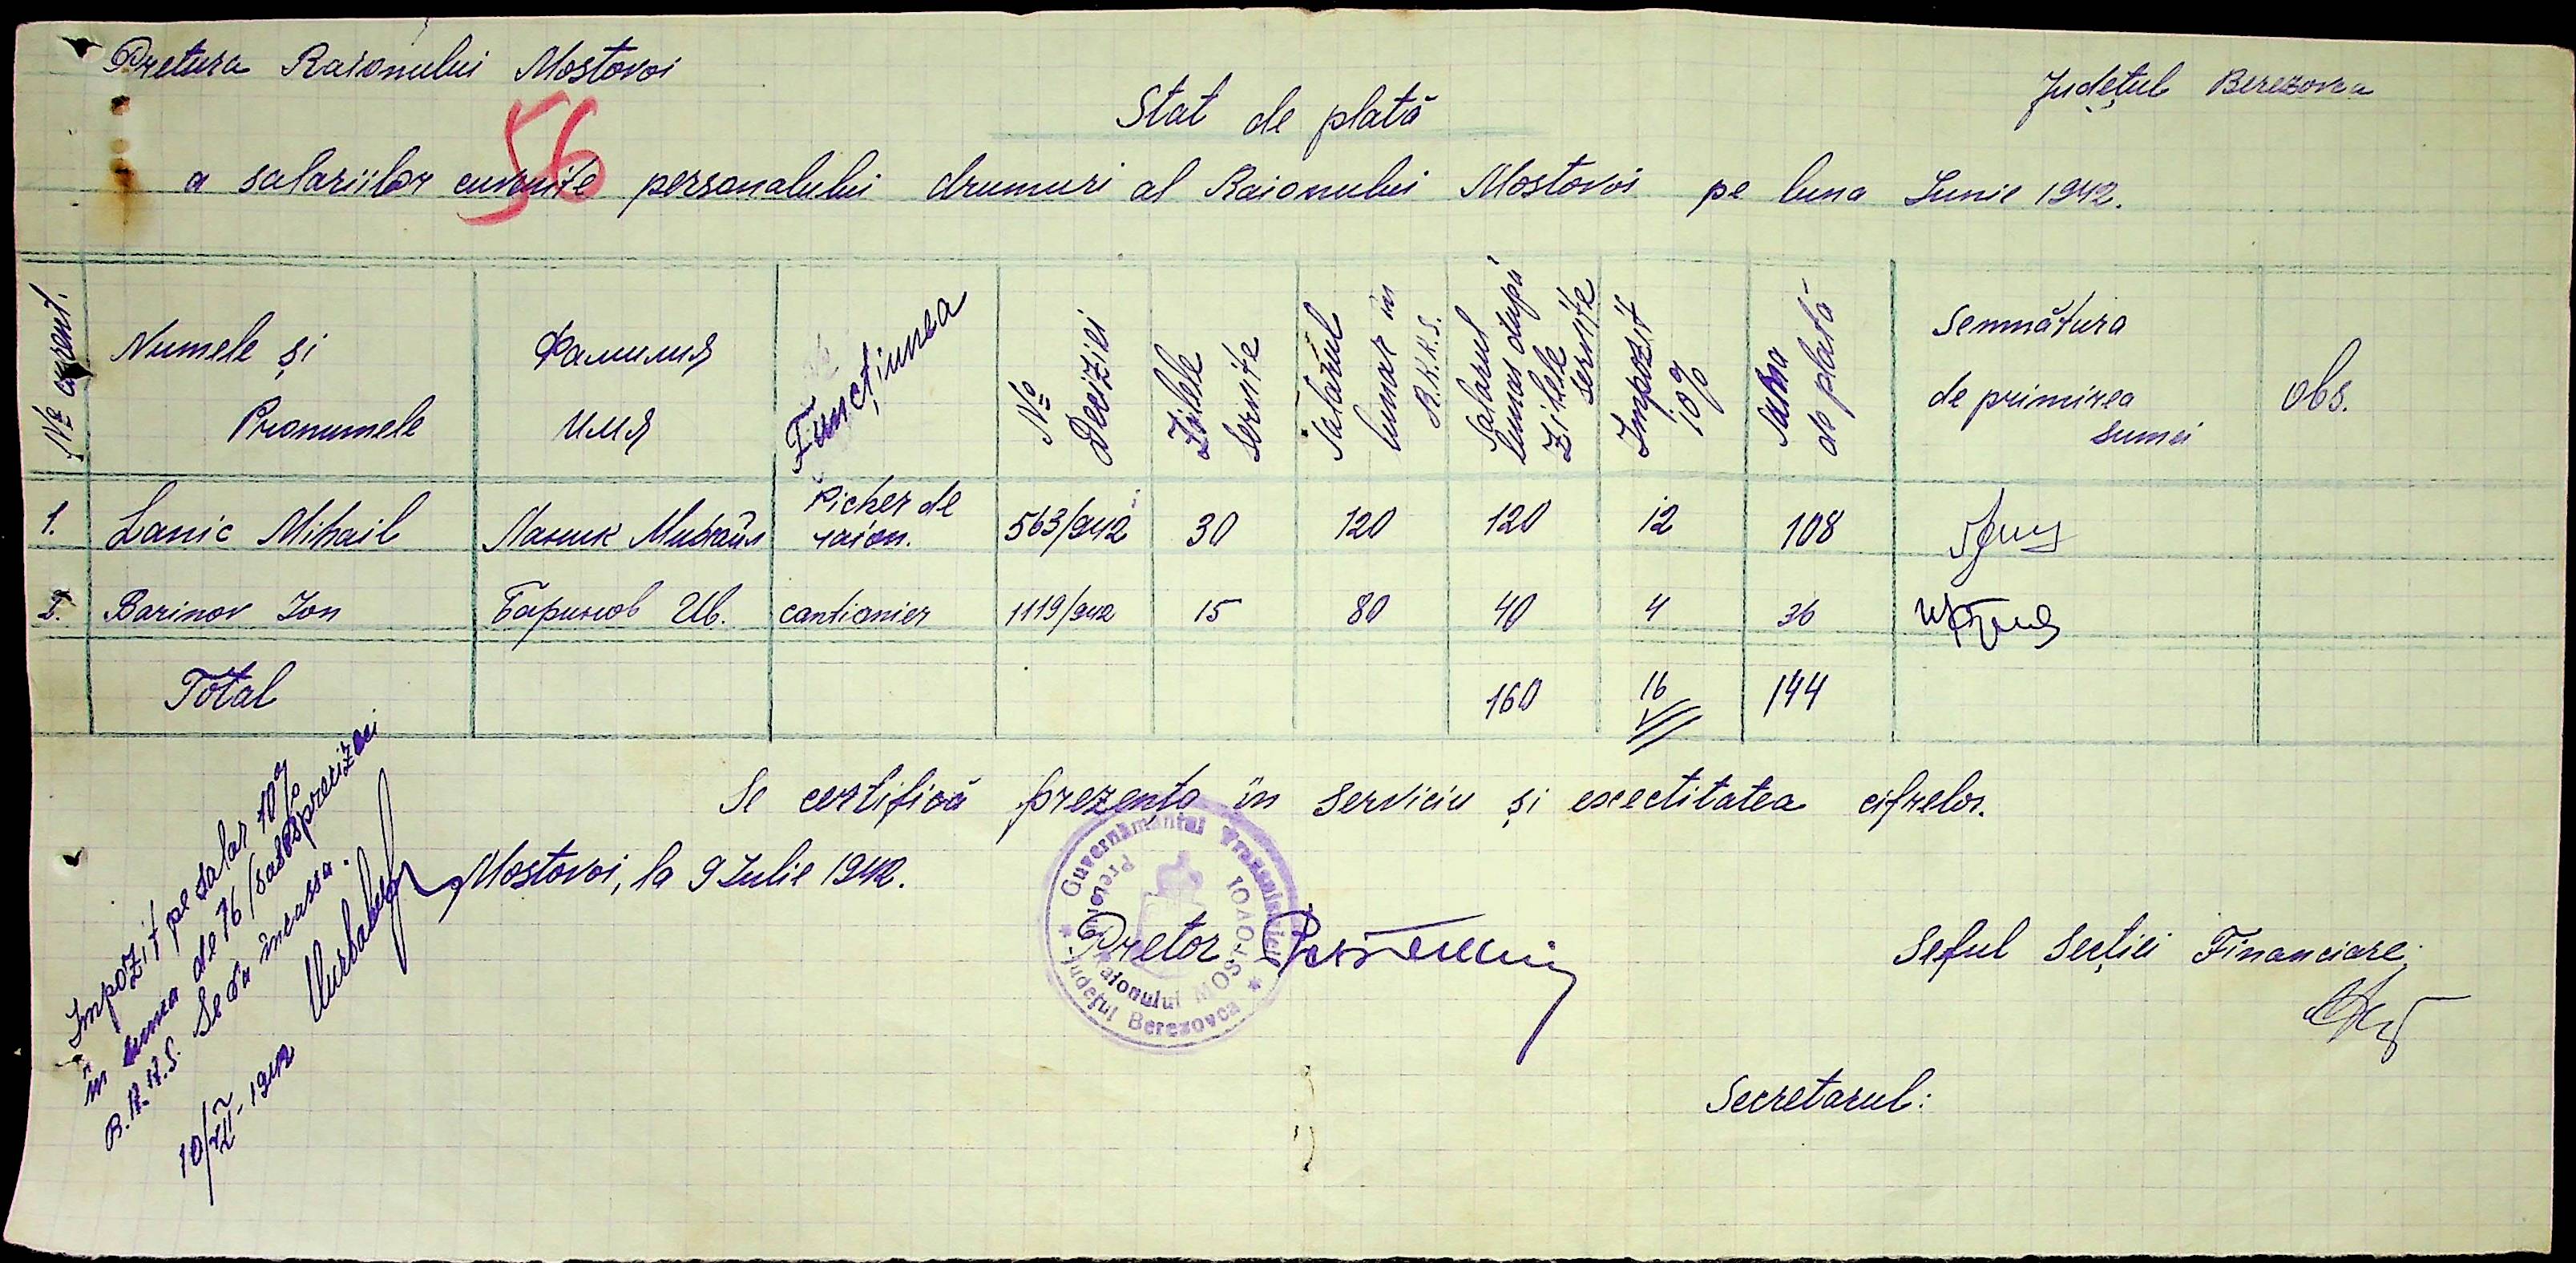 Pretura Raionului Mostovoi
Județul Berezovca
56
Stat de plată
a salariilor cuvenite personalului drumuri al Raionului Mostovoi pe luna Iunie 1942.
№ curent.
Numele și
Pronumele
Фамилия
имя
Funcțiunea
№
Deciziei
Zilele
servite
Salariul
lunar în
R.K.K.S.
Salariul
lunar după
Zilele
servite
Impozit
10%
Suma
de plată
Semnătura
de primirea
sumei
Obs.
1. Lanic Mihail Ланик Михаил Picher de raion. 563/942 30 120 120 12 108
2. Barinov Ion Баринов Ив. cantionier 1119/942 15 80 40 4 36
Total 160 16 144
Se certifică prezența în serviciu și exectitatea cifrelor.
Mostovoi, la 9 Iulie 1942.
Guvernământul Transnistriei
Pretura Raionului MOSTOVOI
Județul Berezovca
Pretor
Seful Secției Financiare,
Secretarul:
Impozit pe salar 10%
în suma de 16
Se va incassa.
10/VII-1942